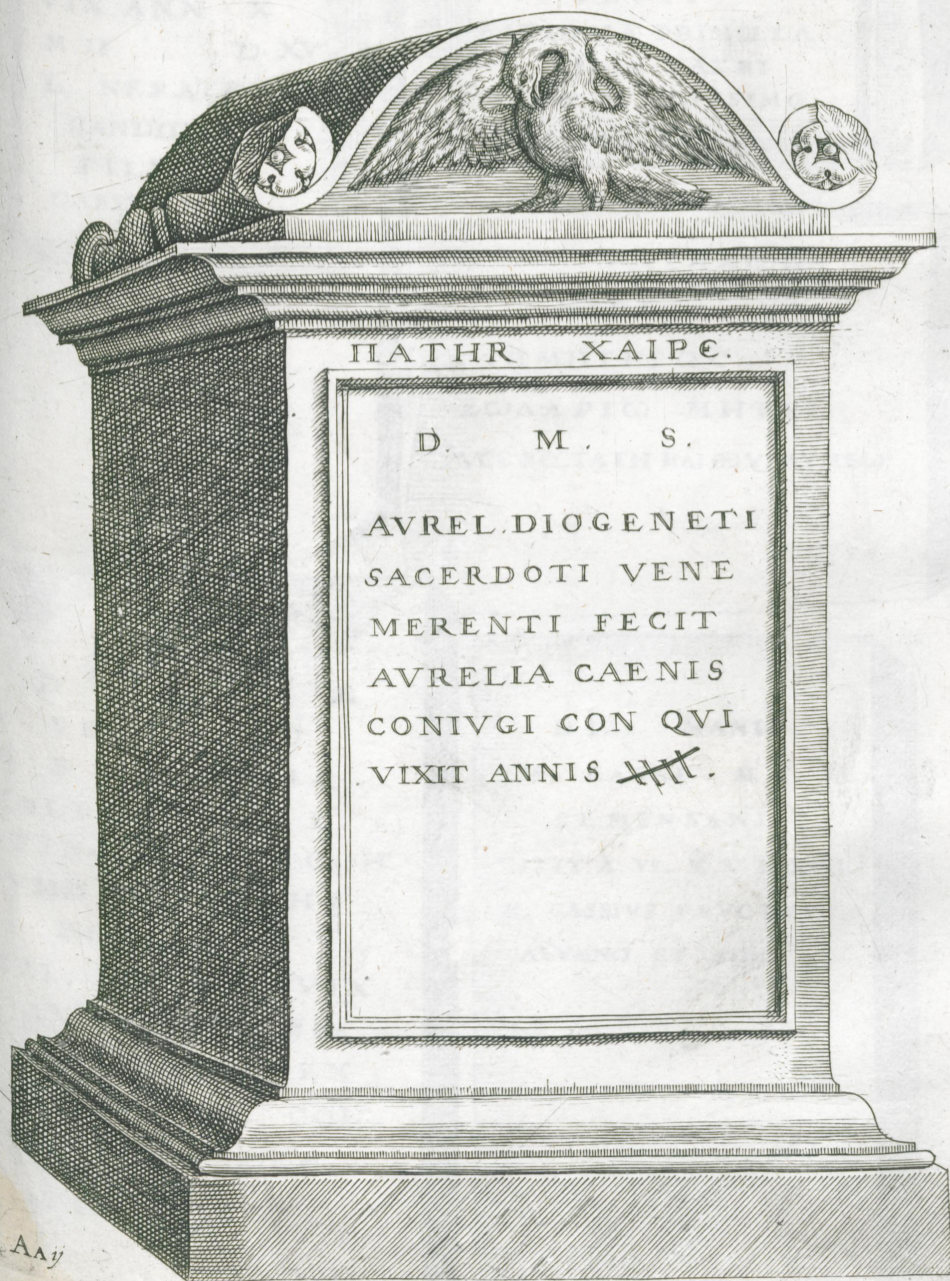 ΠΑΤΗR ΧΑΙΡЄ.
D M. S.
AVREL.DIOGENETI
SACERDOTI VENE
MERENTI FECIT
AVRELIA CAENIS
CONIVGI CON QVI
VIXIT ANNIS
AAij